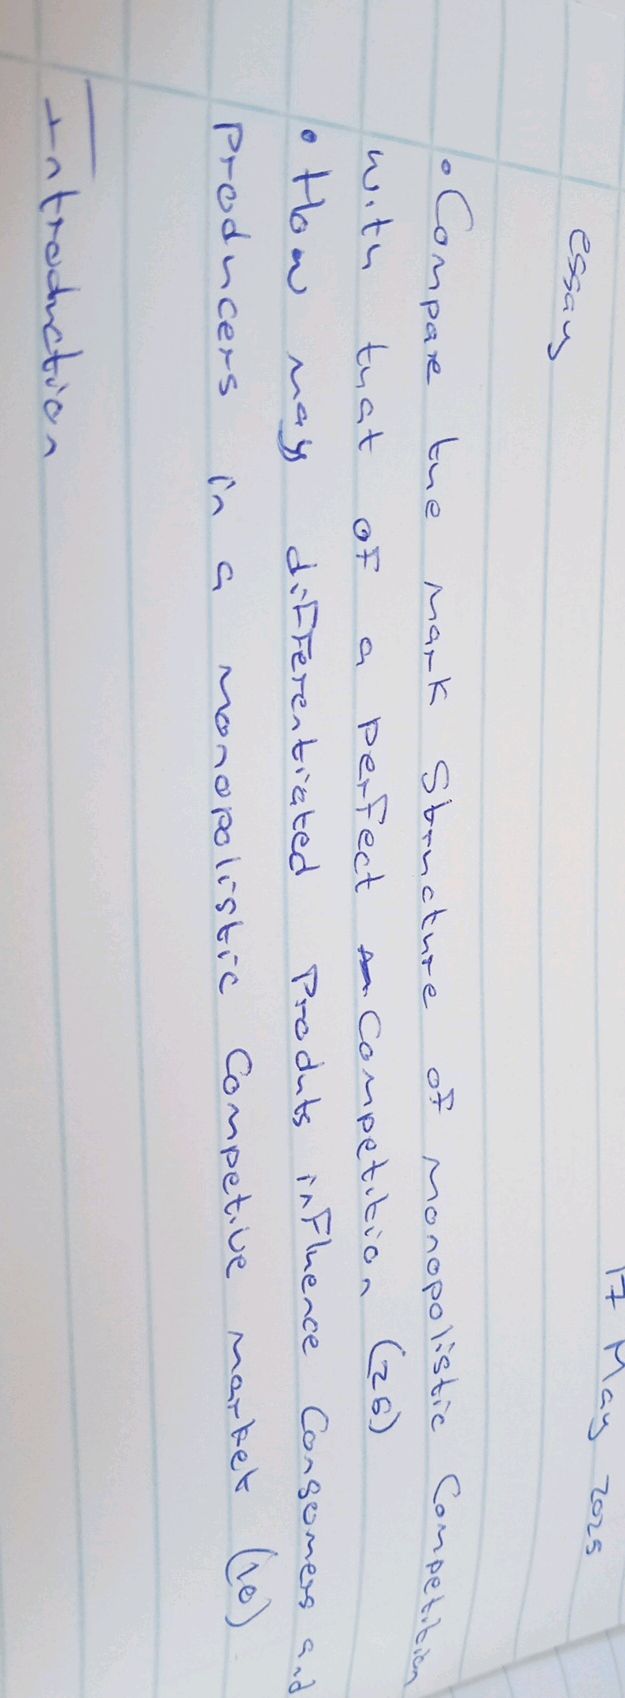 17 May 2025
essay
• Compare the mark structure of monopolistic Competition
with that of a perfect Competition (26)
• How may differentiated Produts influence Consomers and
Producers in a monopolistic Competive market (10)
Introduction